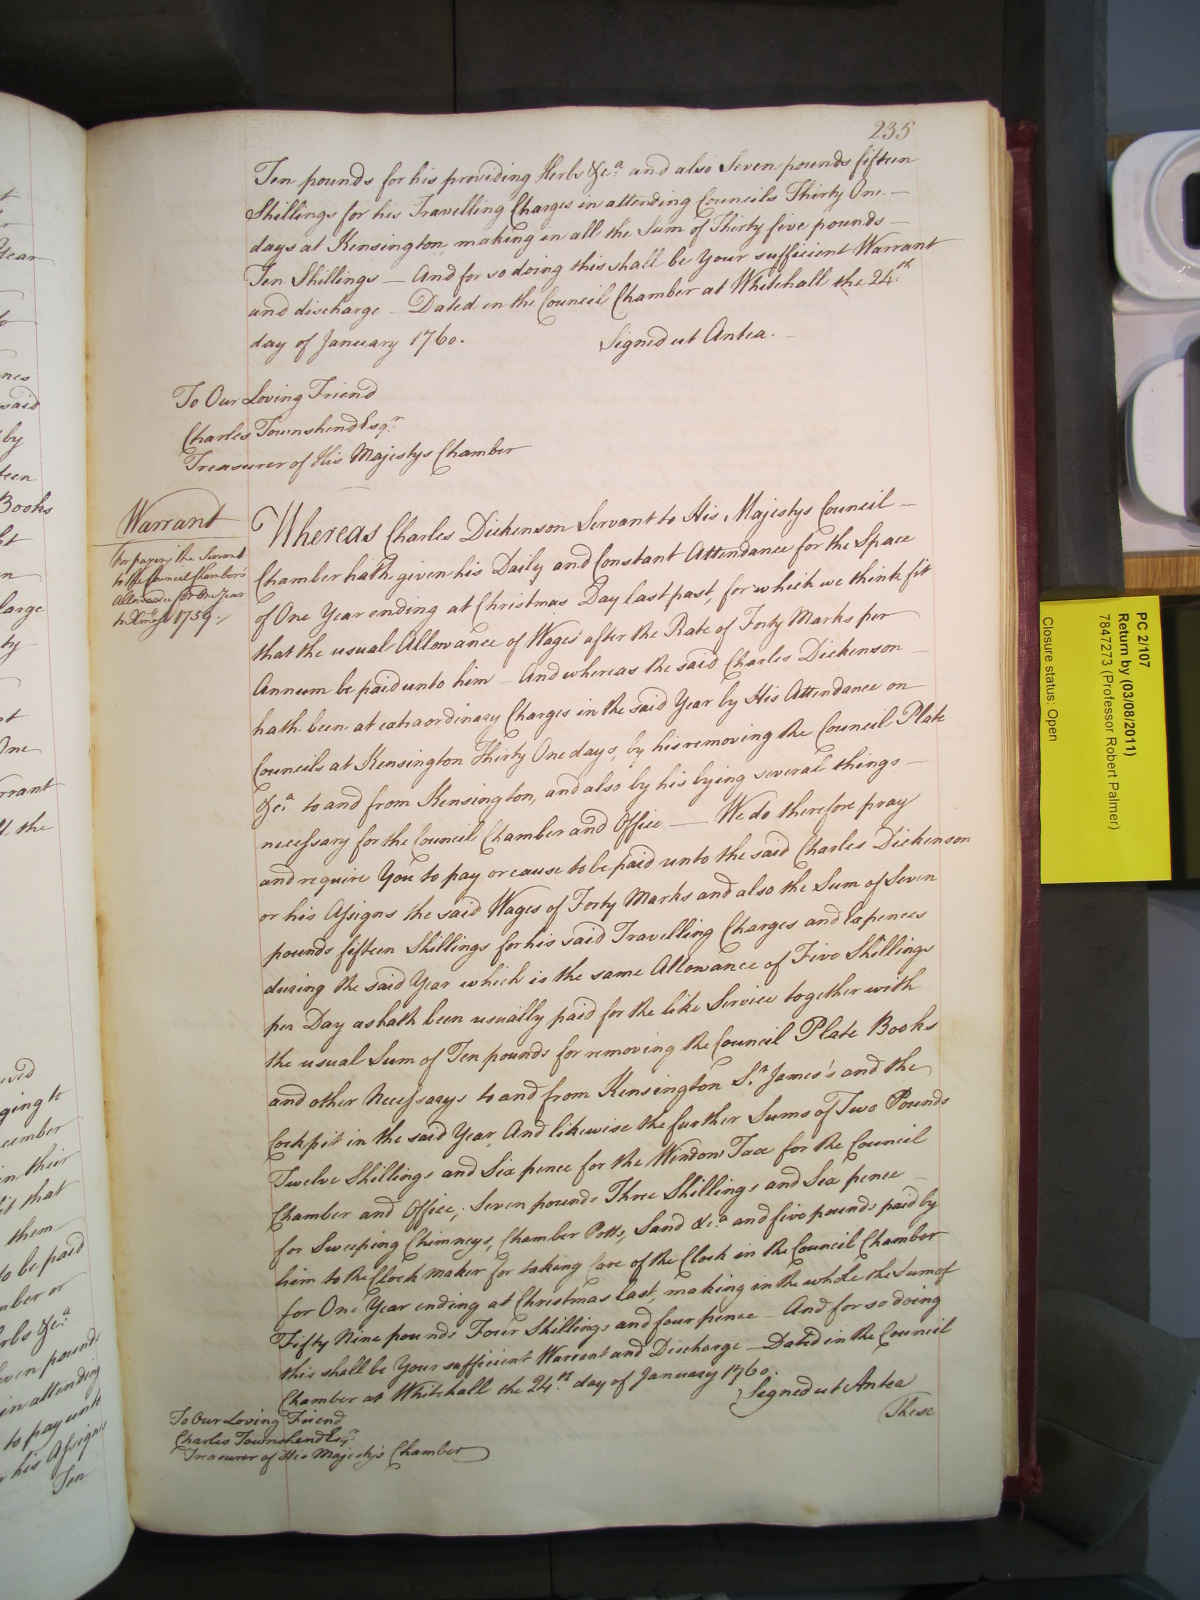 235
Ten pounds for his providing Herbs &c.a and also Seven pounds fifteen
Shillings for his Travelling Charges in attending Councils Thirty One
days at Kensington making in all the Sum of Thirty five pounds
Ten Shillings — And for so doing this shall be Your sufficient Warrant
and discharge — Dated in the Council Chamber at Whitehall the 24.th
day of January 1760.
Signed ut Antea.
To Our Loving Friend
Charles Townshend Esq.r
Treasurer of His Majestys Chamber
Warrant
for paying the Servant
to the Council Chamber
Allowance for One Year
to Xmas 1759.
Whereas Charles Dickenson Servant to His Majestys Council
Chamber hath given his Daily and Constant Attendance for the Space
of One Year ending at Christmas Day last past, for which we think fit
that the usual Allowance of Wages after the Rate of Forty Marks per
Annum be paid unto him — And whereas the said Charles Dickenson
hath been at extraordinary Charges in the said Year by His Attendance on
Councils at Kensington Thirty One days, by his removing the Council Plate
&c.a to and from Kensington, and also by his bying several things
necessary for the Council Chamber and Office — We do therefore pray
and require You to pay or cause to be paid unto the said Charles Dickenson
or his Assigns the said Wages of Forty Marks and also the Sum of Seven
pounds fifteen Shillings for his said Travelling Charges and Expences
during the said Year which is the same Allowance of Five Shillings
per Day as hath been usually paid for the like Service together with
the usual Sum of Ten pounds for removing the Council Plate Books
and other Necessarys to and from Kensington S.t James's and the
Cockpit in the said Year, And likewise the further Sums of Two Pounds
Twelve Shillings and Six pence for the Window Tax for the Council
Chamber and Office, Seven pounds Three Shillings and Six pence
for Sweeping Chimneys, Chamber Potts, Sand &c.a and five pounds paid by
him to the Clock maker for taking Care of the Clock in the Council Chamber
for One Year ending at Christmas last, making in the whole the Sum of
Fifty Nine pounds Four Shillings and four pence — And for so doing
this shall be Your sufficient Warrant and Discharge — Dated in the Council
Chamber at Whitehall the 24.th day of January 1760.
Signed ut Antea
These
To Our Loving Friend
Charles Townshend Esq.r
Treasurer of His Majestys Chamber
PC 2/107
Return by (03/08/2011)
7847273 (Professor Robert Palmer)
Closure status: Open
Year
said
by
Books
large
One
the
ging to
in their
it that
them
to be paid
&c.a
in attending
to pay unto
his Assigns
Ten